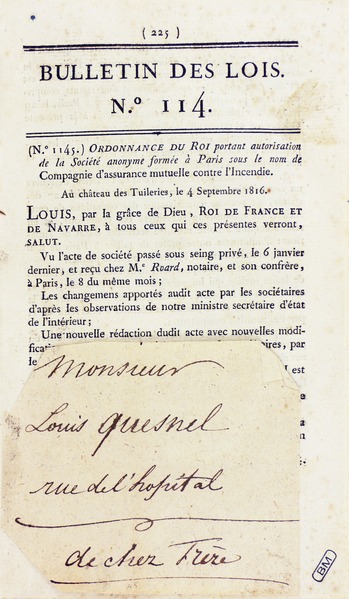 ( 225 )
BULLETIN DES LOIS.
N.º 114.
(N.º 1145.) ORDONNANCE DU ROI portant autorisation
de la Société anonyme formée à Paris sous le nom de
Compagnie d'assurance mutuelle contre l'Incendie.
Au château des Tuileries, le 4 Septembre 1816.
LOUIS, par la grâce de Dieu, ROI DE FRANCE ET
DE NAVARRE, à tous ceux qui ces présentes verront,
SALUT.
Vu l'acte de société passé sous seing privé, le 6 janvier
dernier, et reçu chez M.e Roard, notaire, et son confrère,
à Paris, le 8 du même mois ;
Les changemens apportés audit acte par les sociétaires
d'après les observations de notre ministre secrétaire d'état
de l'intérieur ;
Une nouvelle rédaction dudit acte avec nouvelles modi-
par
le
est
Monsieur
Louis quesnel
rue de l'hopital
de chez Frère
BM